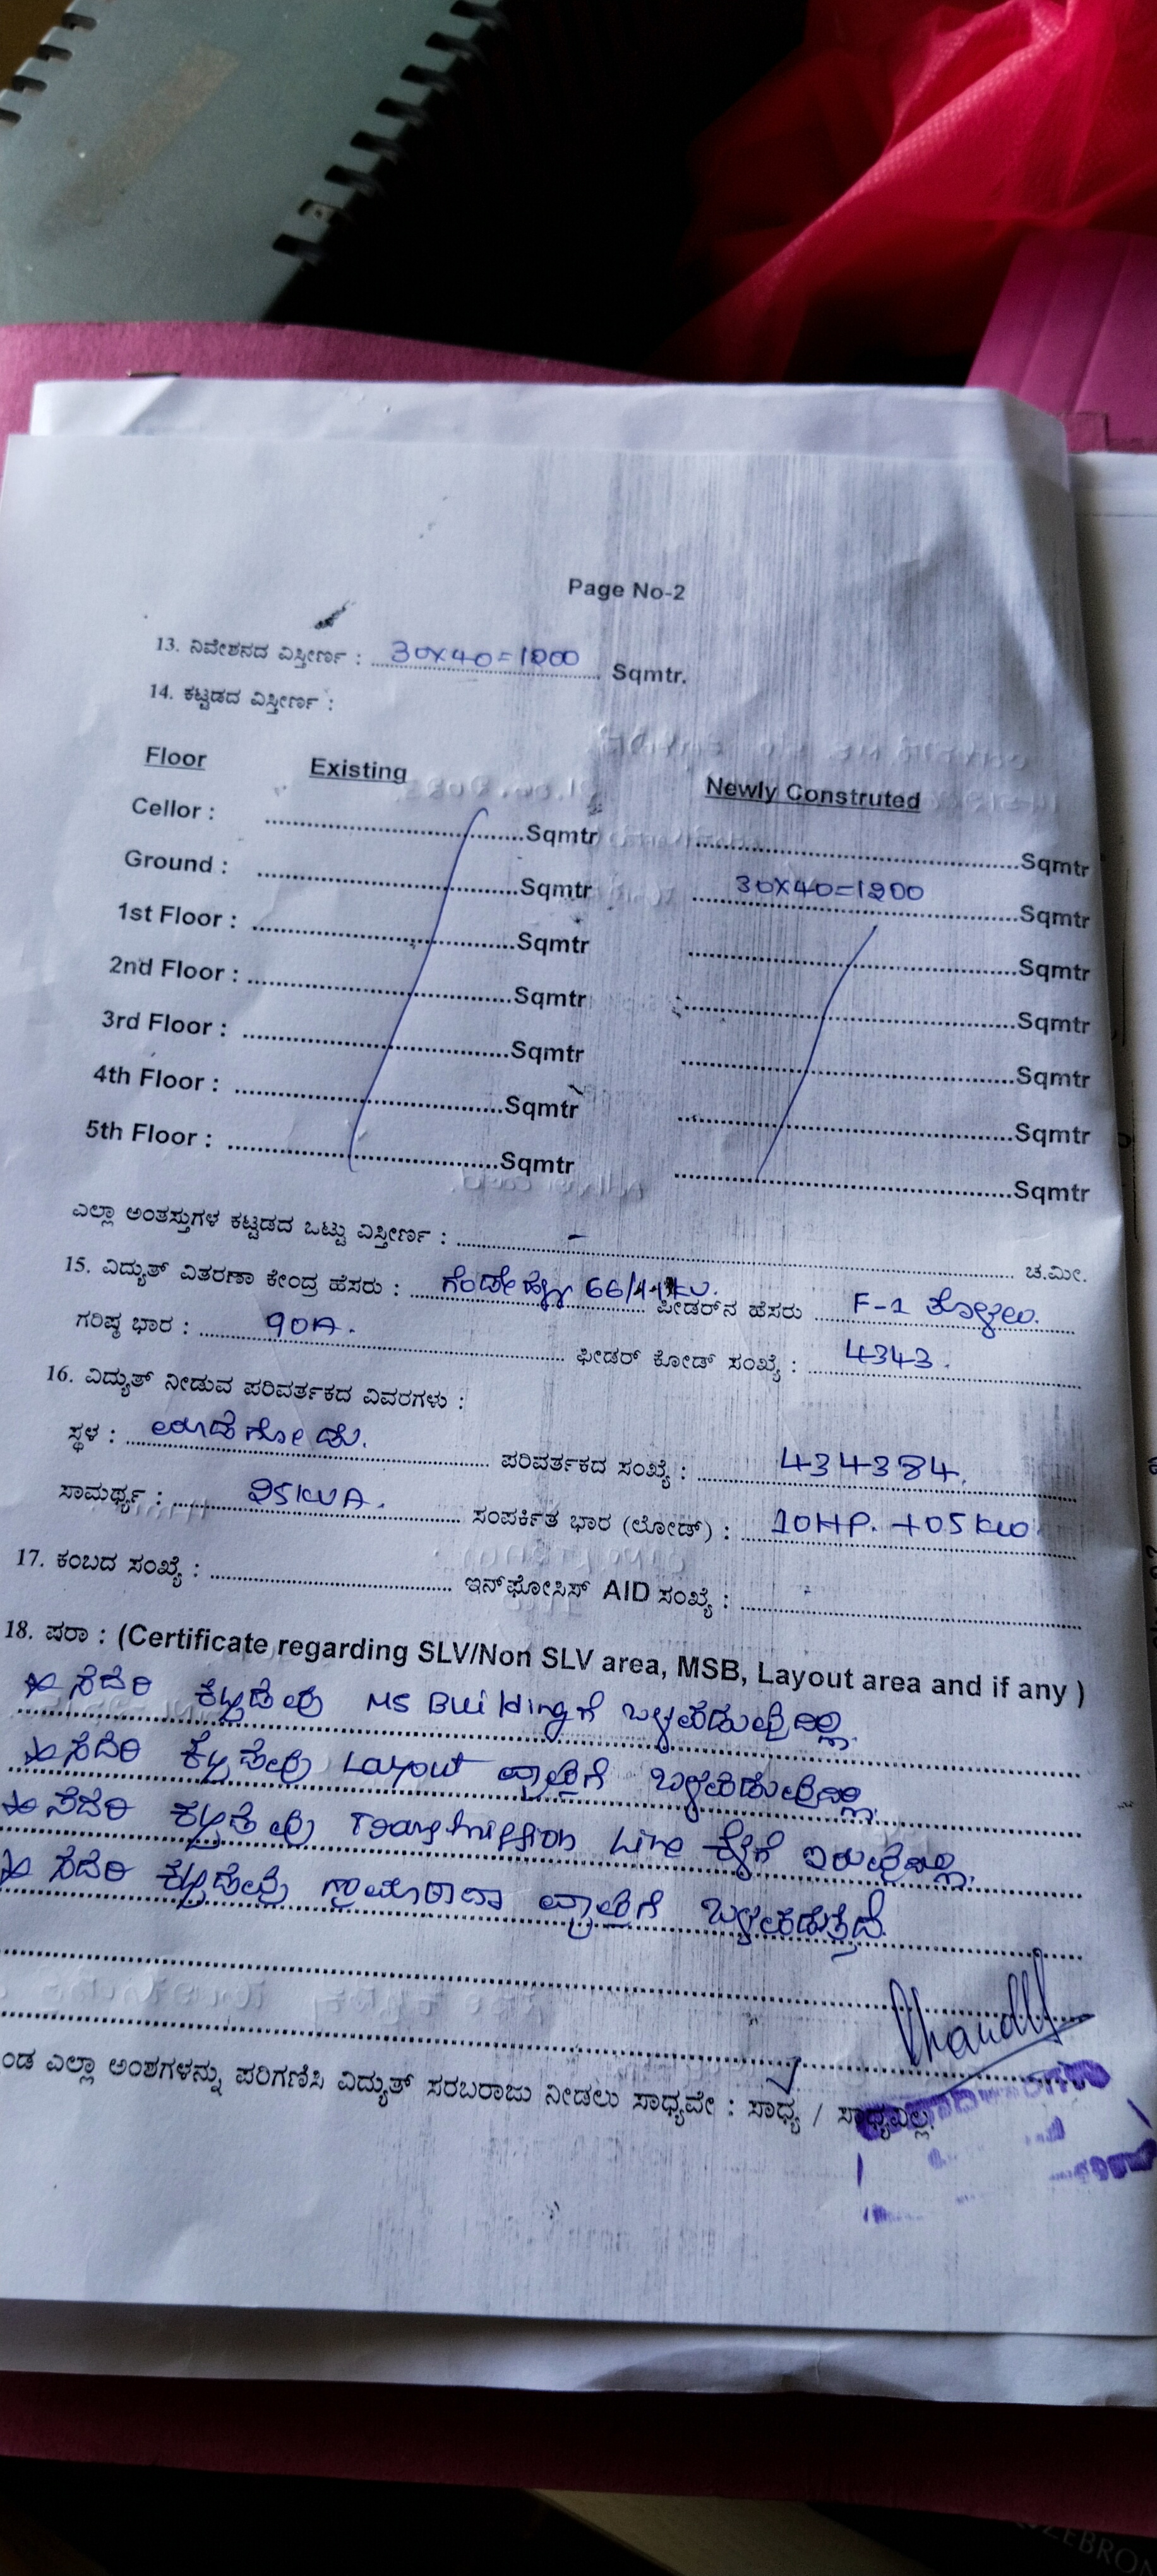 Page No-2
13. ನಿವೇಶನದ ವಿಸ್ತೀರ್ಣ : 30x40=1200 Sqmtr.
14. ಕಟ್ಟಡದ ವಿಸ್ತೀರ್ಣ :
Floor Existing Newly Construted
Cellor : Sqmtr Sqmtr
Ground : Sqmtr 30x40=1200 Sqmtr
1st Floor : Sqmtr Sqmtr
2nd Floor : Sqmtr Sqmtr
3rd Floor : Sqmtr Sqmtr
4th Floor : Sqmtr Sqmtr
5th Floor : Sqmtr Sqmtr
ಎಲ್ಲಾ ಅಂತಸ್ತುಗಳ ಕಟ್ಟಡದ ಒಟ್ಟು ವಿಸ್ತೀರ್ಣ : - ಚ.ಮೀ.
15. ವಿದ್ಯುತ್ ವಿತರಣಾ ಕೇಂದ್ರ ಹೆಸರು : 66/11KV. ಫೀಡರ್‌ನ ಹೆಸರು F-1
ಗರಿಷ್ಠ ಭಾರ : 90A. ಫೀಡರ್ ಕೋಡ್ ಸಂಖ್ಯೆ : 4343.
16. ವಿದ್ಯುತ್ ನೀಡುವ ಪರಿವರ್ತಕದ ವಿವರಗಳು :
ಸ್ಥಳ : ಪರಿವರ್ತಕದ ಸಂಖ್ಯೆ : 434384.
ಸಾಮರ್ಥ್ಯ : 25KVA. ಸಂಪರ್ಕಿತ ಭಾರ (ಲೋಡ್) : 10HP. +05KW
17. ಕಂಬದ ಸಂಖ್ಯೆ : ಇನ್‌ಫೋಸಿಸ್ AID ಸಂಖ್ಯೆ :
18. ಷರಾ : (Certificate regarding SLV/Non SLV area, MSB, Layout area and if any )
ಸದರಿ ಕಟ್ಟಡವು MS Buildingಗೆ ಒಳಪಡುವುದಿಲ್ಲ.
ಸದರಿ ಕಟ್ಟಡವು Layout ವ್ಯಾಪ್ತಿಗೆ ಒಳಪಡುವುದಿಲ್ಲ.
ಸದರಿ ಕಟ್ಟಡವು Transmission Line ಕೆಳಗೆ ಇರುವುದಿಲ್ಲ.
ಸದರಿ ಕಟ್ಟಡವು ಗ್ರಾಮಠಾಣಾ ವ್ಯಾಪ್ತಿಗೆ ಒಳಪಡುತ್ತದೆ.
ಂಡ ಎಲ್ಲಾ ಅಂಶಗಳನ್ನು ಪರಿಗಣಿಸಿ ವಿದ್ಯುತ್ ಸರಬರಾಜು ನೀಡಲು ಸಾಧ್ಯವೇ : ಸಾಧ್ಯ / ಸಾಧ್ಯವಿಲ್ಲ.